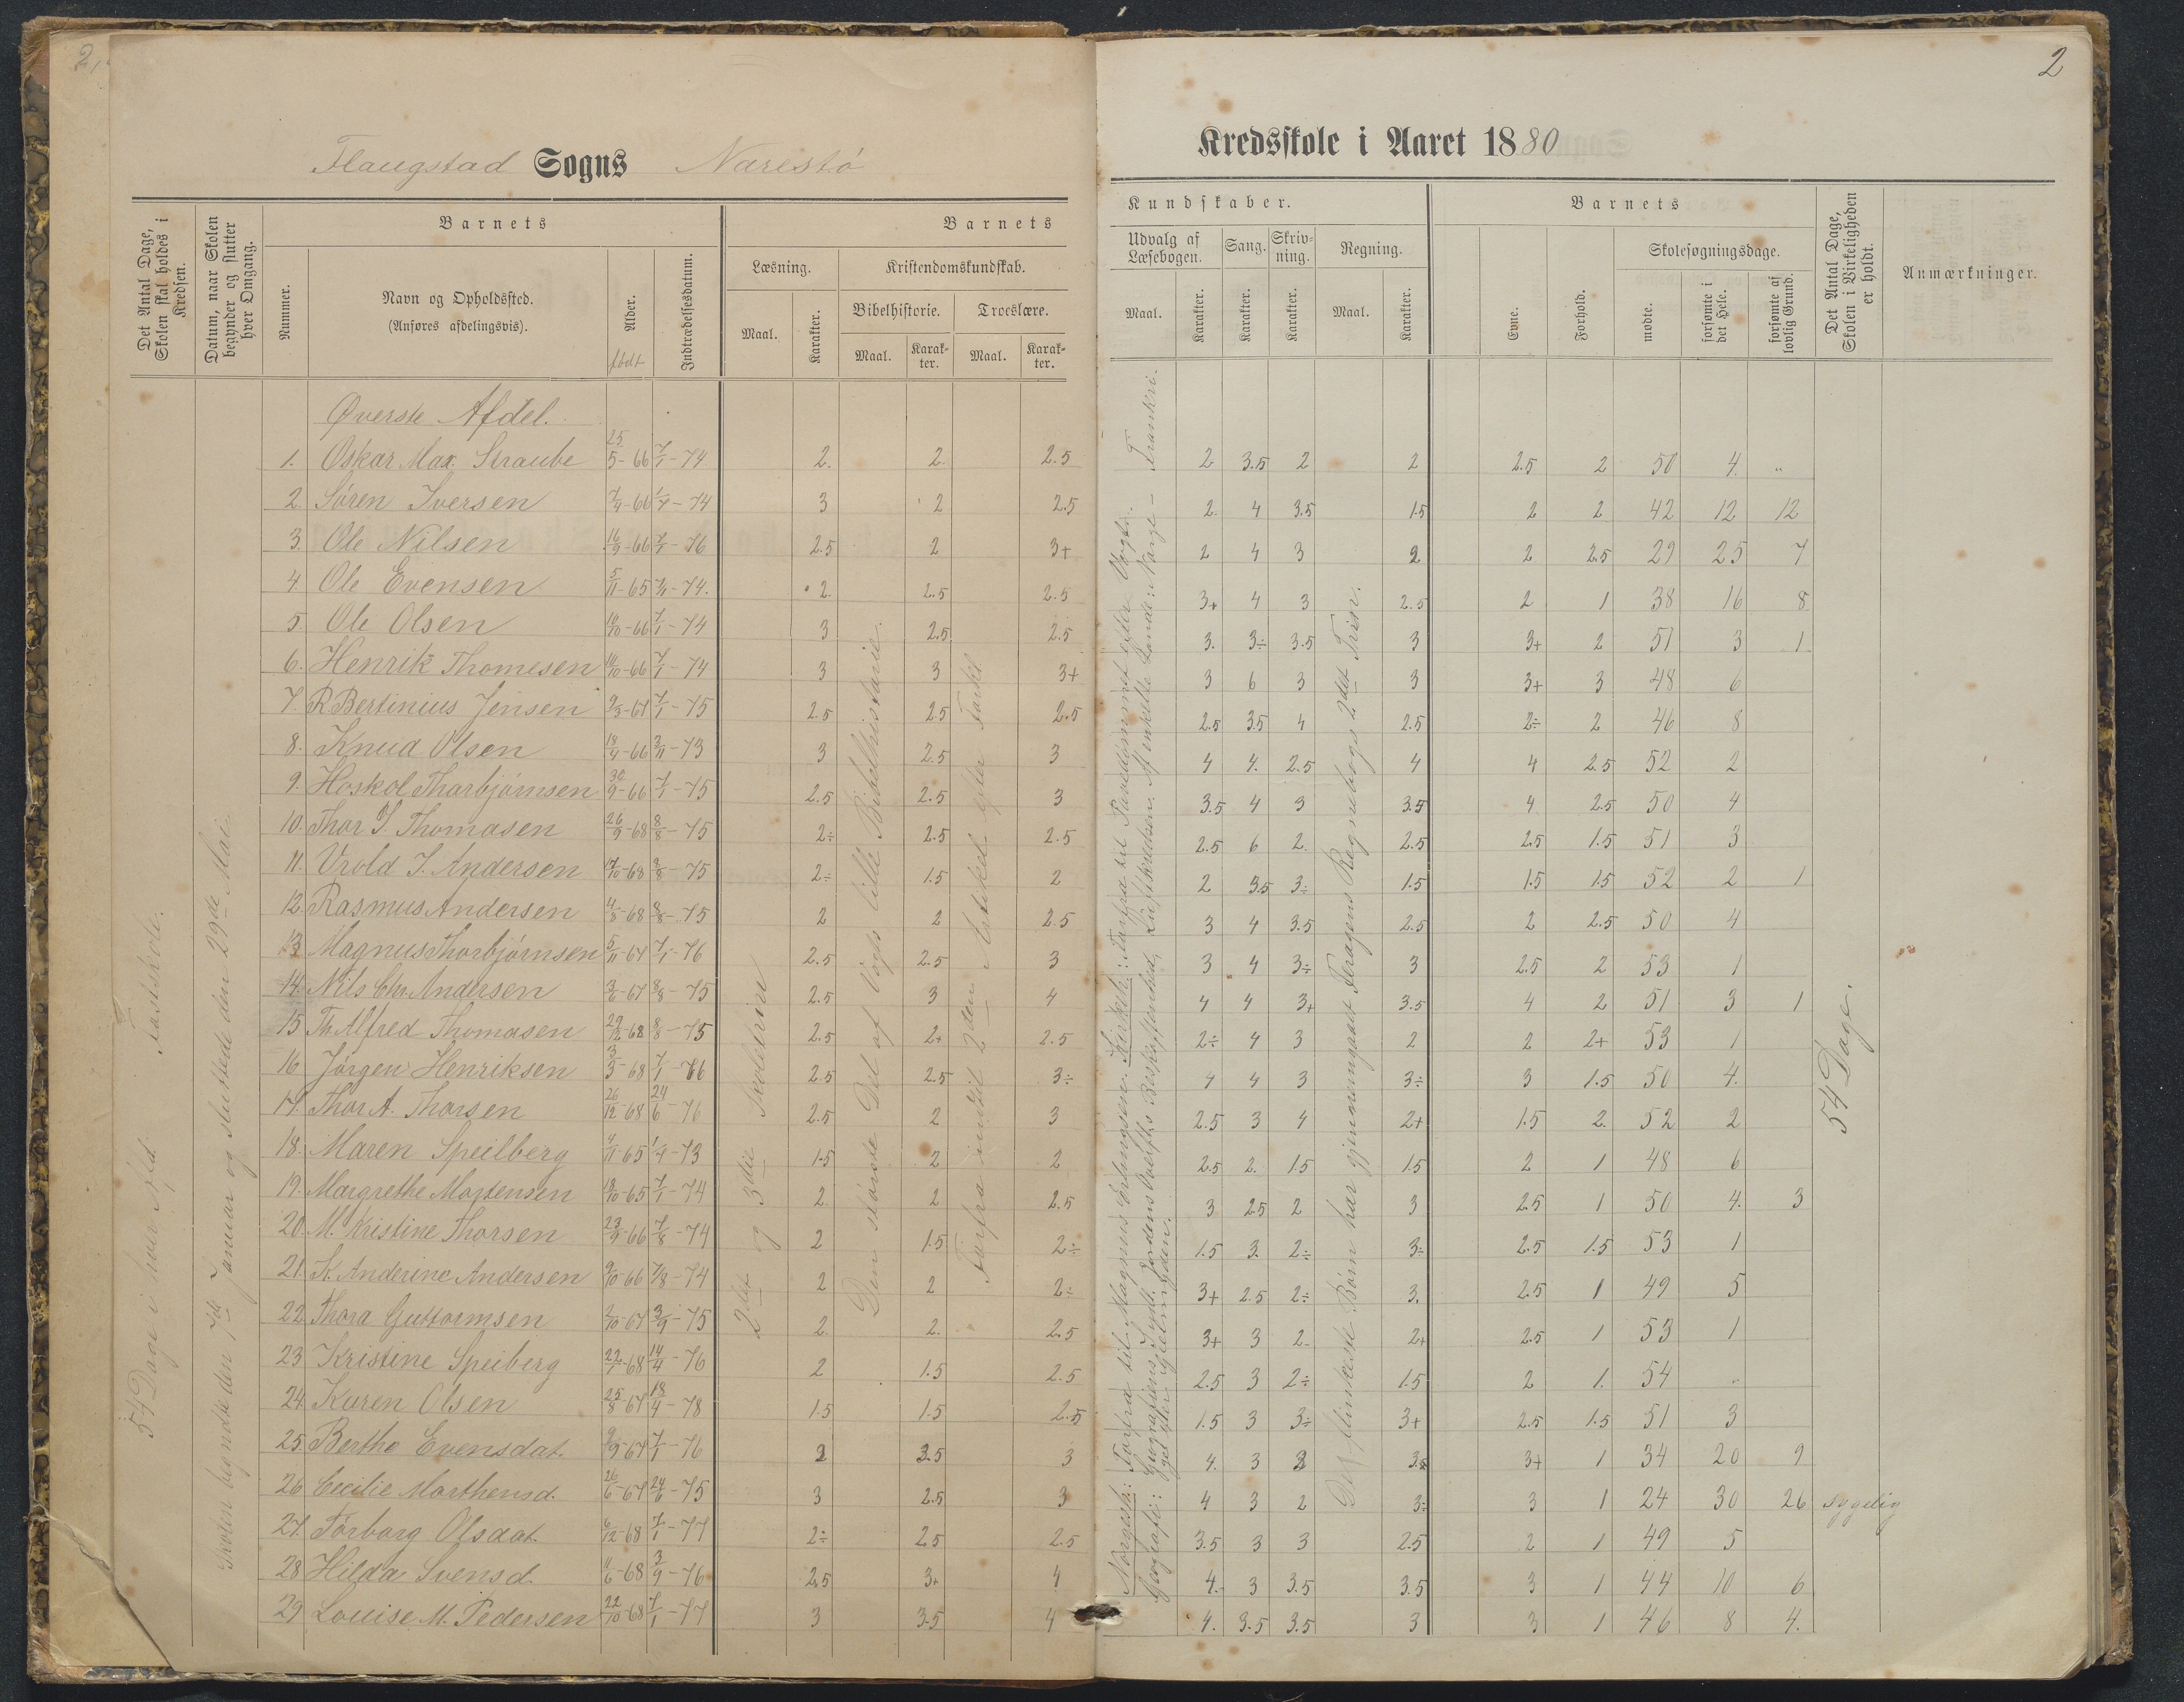 2
2
Flaugstad Sogns Narestø
Kredsskole i Aaret 1880
Det Antal Dage, Skolen skal holdes i Kredsen.
Datum, naar Skolen begynder og slutter hver Omgang.
Barnets
Nummer.
Navn og Opholdssted.
(Anføres afdelingsvis).
Alder.
født
Indtrædelsesdatum.
Barnets Kundskaber.
Læsning.
Maal.
Karakter.
Kristendomskundskab.
Bibelhistorie.
Maal.
Karakter.
Troeslære.
Maal.
Karakter.
Udvalg af Læsebogen.
Maal.
Karakter.
Sang.
Karakter.
Skrivning.
Karakter.
Regning.
Maal.
Karakter.
Barnets
Evne.
Forhold.
Skolesøgningsdage.
mødte.
forsømte i det Hele.
forsømte af lovlig Grund.
Det Antal Dage, Skolen i Virkeligheden er holdt.
Anmærkninger.
54 Dage i hver Afd. Fastskole.
Skolen begyndte den 7de Januar og sluttede den 29de Mai.
2det og 3die Skoletrin
Den største Del af Vogts lille Bibelhistorie.
Forfra indtil 2den Artikel efter Forkl.
Det flinkeste Børn har gjennemgaaet Feragens Regnebogs 2det Trin.
54 Dage.
Øverste Afdel.
1. Oskar Max Straube 25/5-66 7/1-74 2. 2. 2.5 2 3.5 2 2 2.5 2 50 4. "
2. Søren Iversen 7/4-66 1/7-74 3 2 2.5 2. 4 3.5 1.5 2 2 42 12 12
3. Ole Nilsen 16/9-66 7/1-76 2.5 2 3+ 2 4 3 2 2 2.5 29 25 7
4. Ole Evensen 5/11-65 7/1-74. 2. 2.5 2.5 3+ 4 3 2.5 2 1 38 16 8
5 Ole Olsen 10/10-66 7/1-74 3 2.5 2.5 3. 3÷ 3.5 3 3+ 2 51 3 1
6. Henrik Thomesen 14/10-66 7/1-74 3 3 3+ 3 6 3 3 3+ 3 48 6
7. R Bertinius Jensen 9/3-67 7/1-75 2.5 2.5 2.5 2.5 3.5 4 2.5 2÷ 2 46 8
8. Knud Olsen 19/4-66 3/11-73 3 2.5 3 4 4. 2.5 4 4 2.5 52 2
9. Hoskol Thorbjørnsen 30/9-66 7/1-75 2.5 2.5 3 3.5 4 3 3.5 4 2.5 50 4
10. Thor S. Thomasen 26/9-68 8/8-75 2÷ 2.5 2.5 2.5 6 2. 2.5 2.5 1.5 51 3
11. Vrold J. Andersen 17/10-68 8/8-75 2÷ 1.5 2 2 3.5 3÷ 1.5 1.5 1.5 52 2 1
12. Rasmus Andersen 4/8-68 8/8-75 2 2 2.5 3 4 3.5 2.5 2 2.5 50 4
13 Magnus Thorbjørnsen 5/11-67 7/1-76 2.5 2.5 3 3 4 3÷ 3 2.5 2 53 1
14. Nils Chr. Andersen 3/6-67 8/8-75 2.5 3 4 4 4 3+ 3.5 4 2 51 3 1
15 Th. Alfred Thomasen 29/12-68 8/8-75 2.5 2+ 2.5 2÷ 4 3 2 2 2+ 53 1
16 Jørgen Henriksen 3/3-68 7/1-76 2.5 2.5 3÷ 4 4 3 3÷ 3 1.5 50 4.
17. Thor A. Thorsen 26/12-68 24/6-76 2.5 2 3 2.5 3 4 2+ 1.5 2. 52 2
18. Maren Speilberg 4/11-65 1/4-73 1.5 2 2 2.5 2. 1.5 1.5 2 1 48 6
19. Margrethe Mortensen 18/10-65 7/1-74 2 2 2.5 3 2.5 2 3 2.5 1 50 4. 3
20. M. Kristine Thorsen 23/9-66 7/8-74 2 1.5 2÷ 1.5 3. 2÷ 3÷ 2.5 1.5 53 1
21. K. Anderine Andersen 9/10 66 7/8-74 2 2 2÷ 3+ 2.5 2÷ 3. 2.5 1 49 5
22. Thora Guttormsen 2/10-67 3/9-75 2. 2. 2.5 3+ 3 2- 2+ 2.5 1 53 1
23 Kristine Speiberg 22/1-68 14/4-76 2 1.5 2.5 2.5 3 2÷ 1.5 2 1. 54 "
24. Karen Olsen 25/8-67 18/4-78 1.5 1.5 2.5 1.5 3 3÷ 3+ 2.5 1.5 51 3
25. Berthe Evensdat. 9/9-67 7/1-76 2 3.5 3 4. 3 3 3.5 3+ 1 34 20 9
26 Cecilie Marthensd. 26/6-67 24/6-75 3 2.5 3 4 3 2 3÷ 3 1 24 30 26 sygelig
27. Torborg Olsdat. 6/12-68 7/1-77 2÷ 2.5 2.5 3.5 3 3 2.5 2 1 49 5
28 Hilda Svensd. 11/6-68 3/9-76 2.5 3+ 4 4. 3 3.5 3.5 3 1 44 10 6
29 Louise M. Pedersen 22/10-68 7/1-77 3 3.5 4 4. 3.5 3.5 3 3 1 46 8 4.